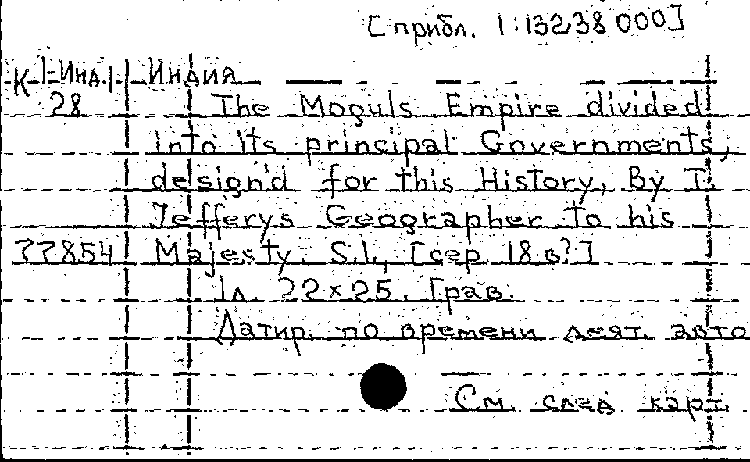 [прибл. 1:13238000]
К 1-Инд. Индия
28 The Moguls Empire divided
into its principal Governments,
design'd for this History, By T.
Jefferys Geographer to his
77854 Majesty. S.l., [сер 18 в?]
1 л. 22×25. Грав.
Датир. по времени деят. авто
См. след карт.